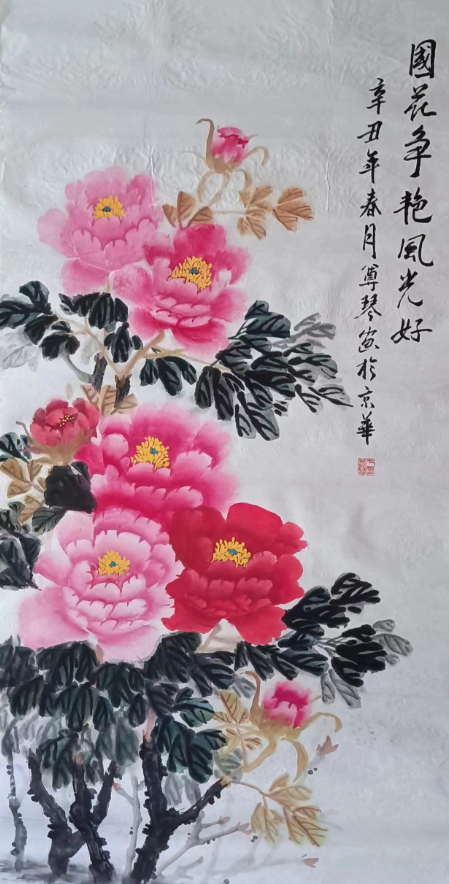 國花争艳風光好
辛丑年春月傅琴寫於京華